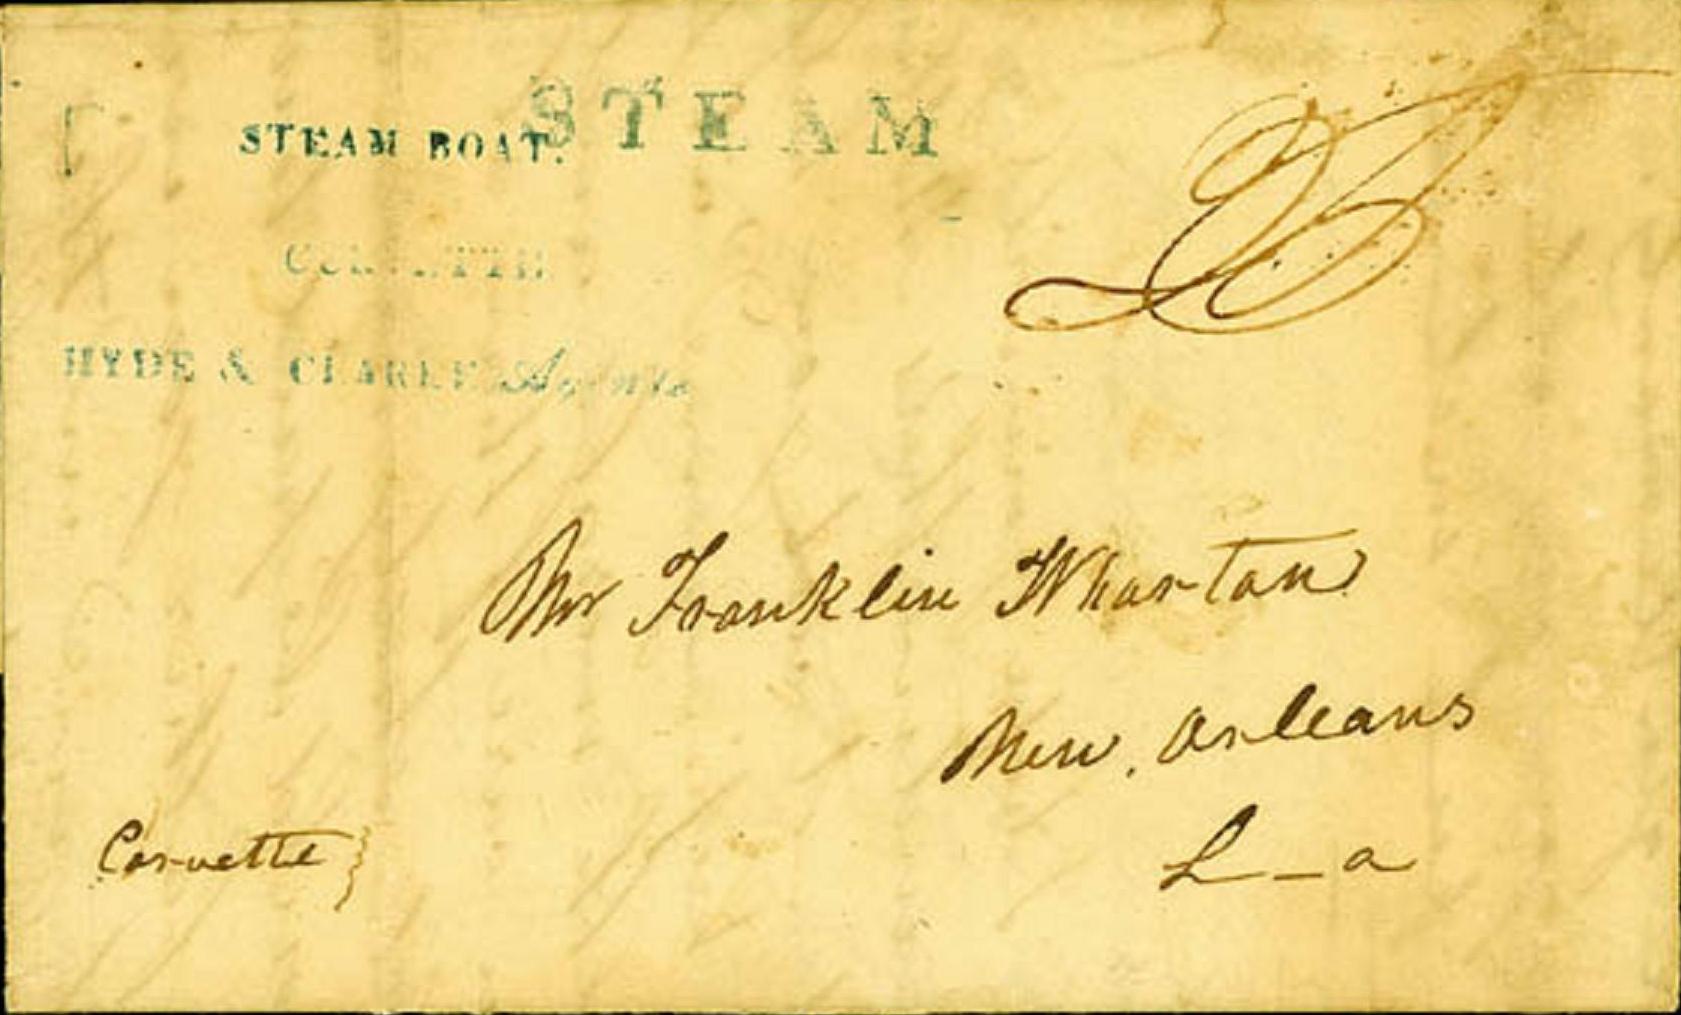 STEAM
STEAM BOAT.
HYDE & CLARKE Agents
Mr Franklin Wharton
New. Orleans
L_a
Corvette